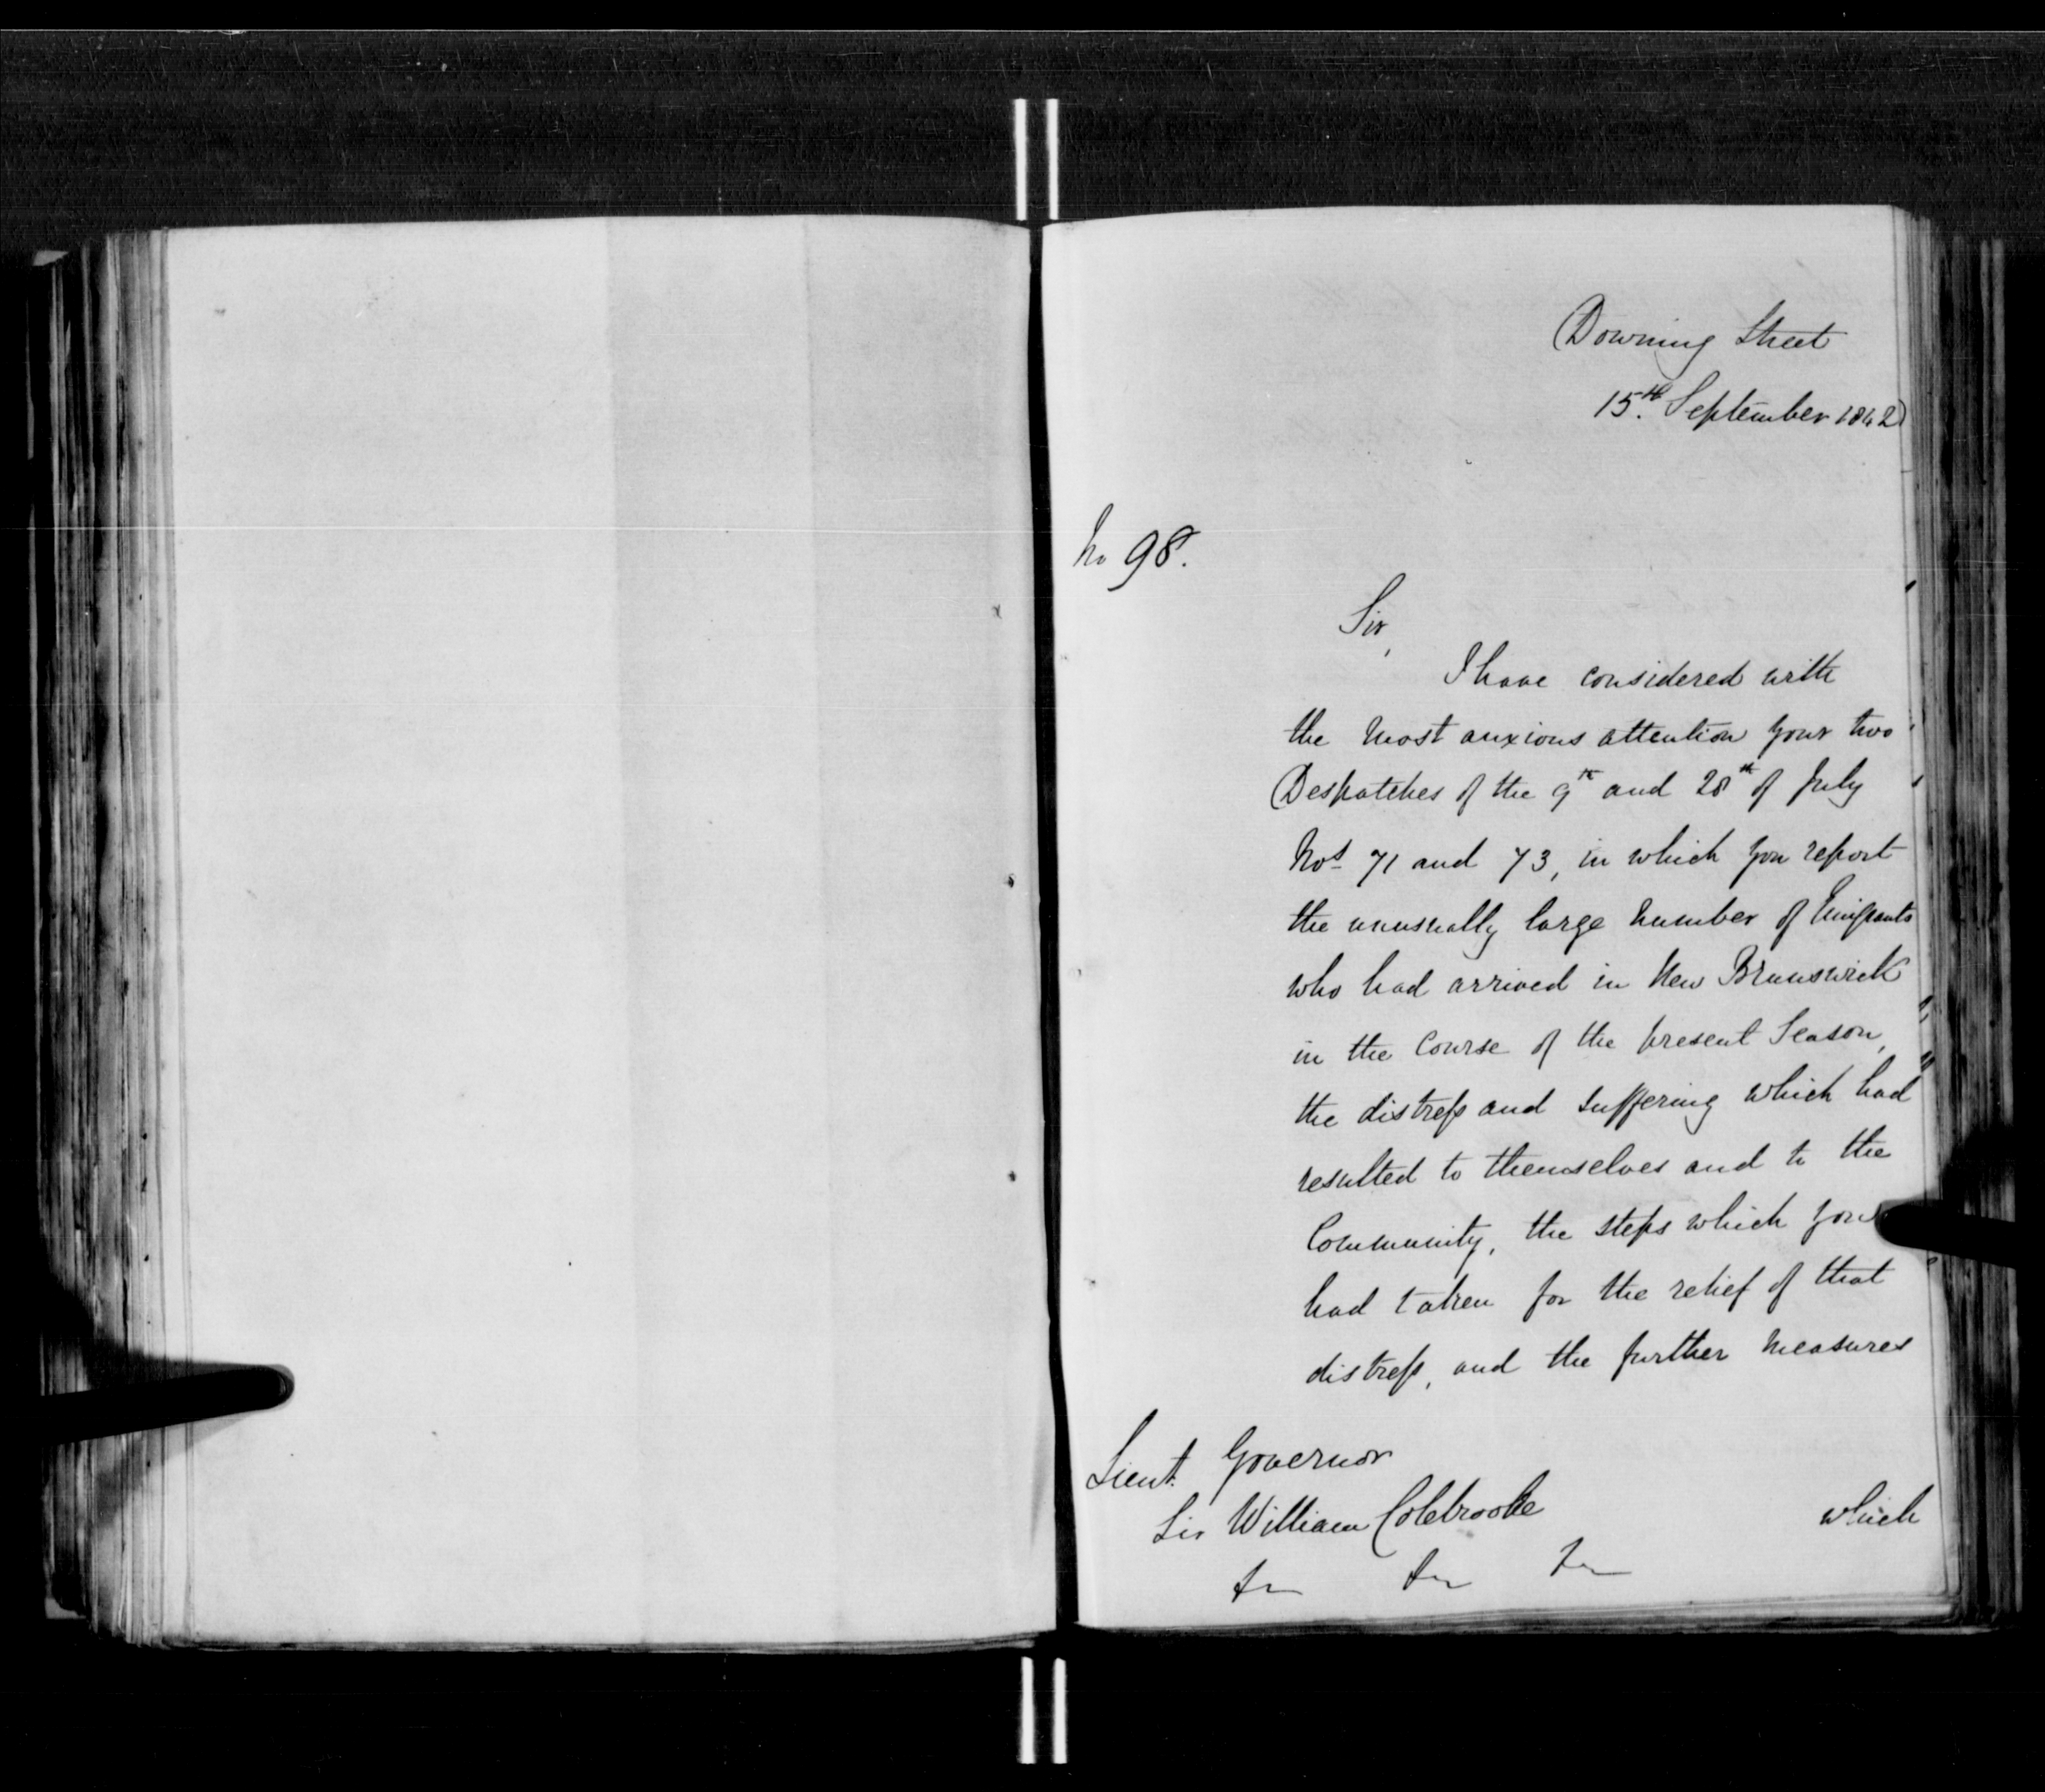 Downing Street
15th. September 1842
No 98.
Sir,
I have considered with
the most anxious attention your two
Despatches of the 9th and 28th of July
Nos 71 and 73, in which you report
the unusually large number of Emigrants
who had arrived in New Brunswick
in the Course of the present Season,
the distress and suffering which had
resulted to themselves and to the
Community, the steps which you
had taken for the relief of that
distress, and the further measures
Lieut. Governor
Sir William Colebrooke
&c &c &c
which